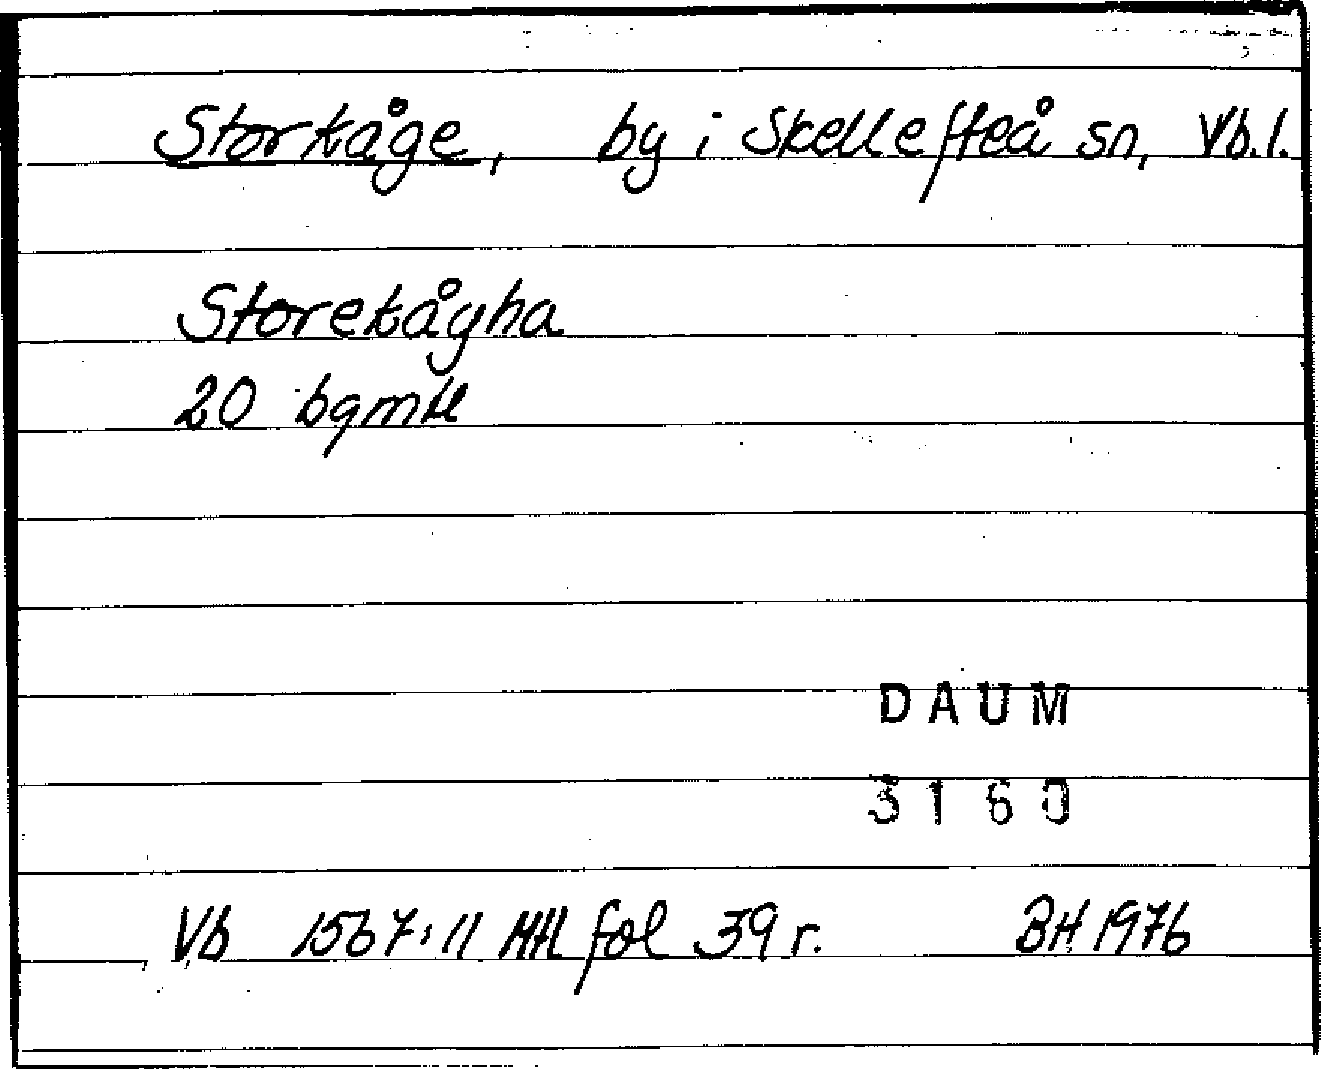 Storkåge, by i Skellefteå sn, Vb.l.
Storekågha
20 bgmtl
DAUM
3160
Vb 1567:11 Mtl fol 39 r. BH 1976